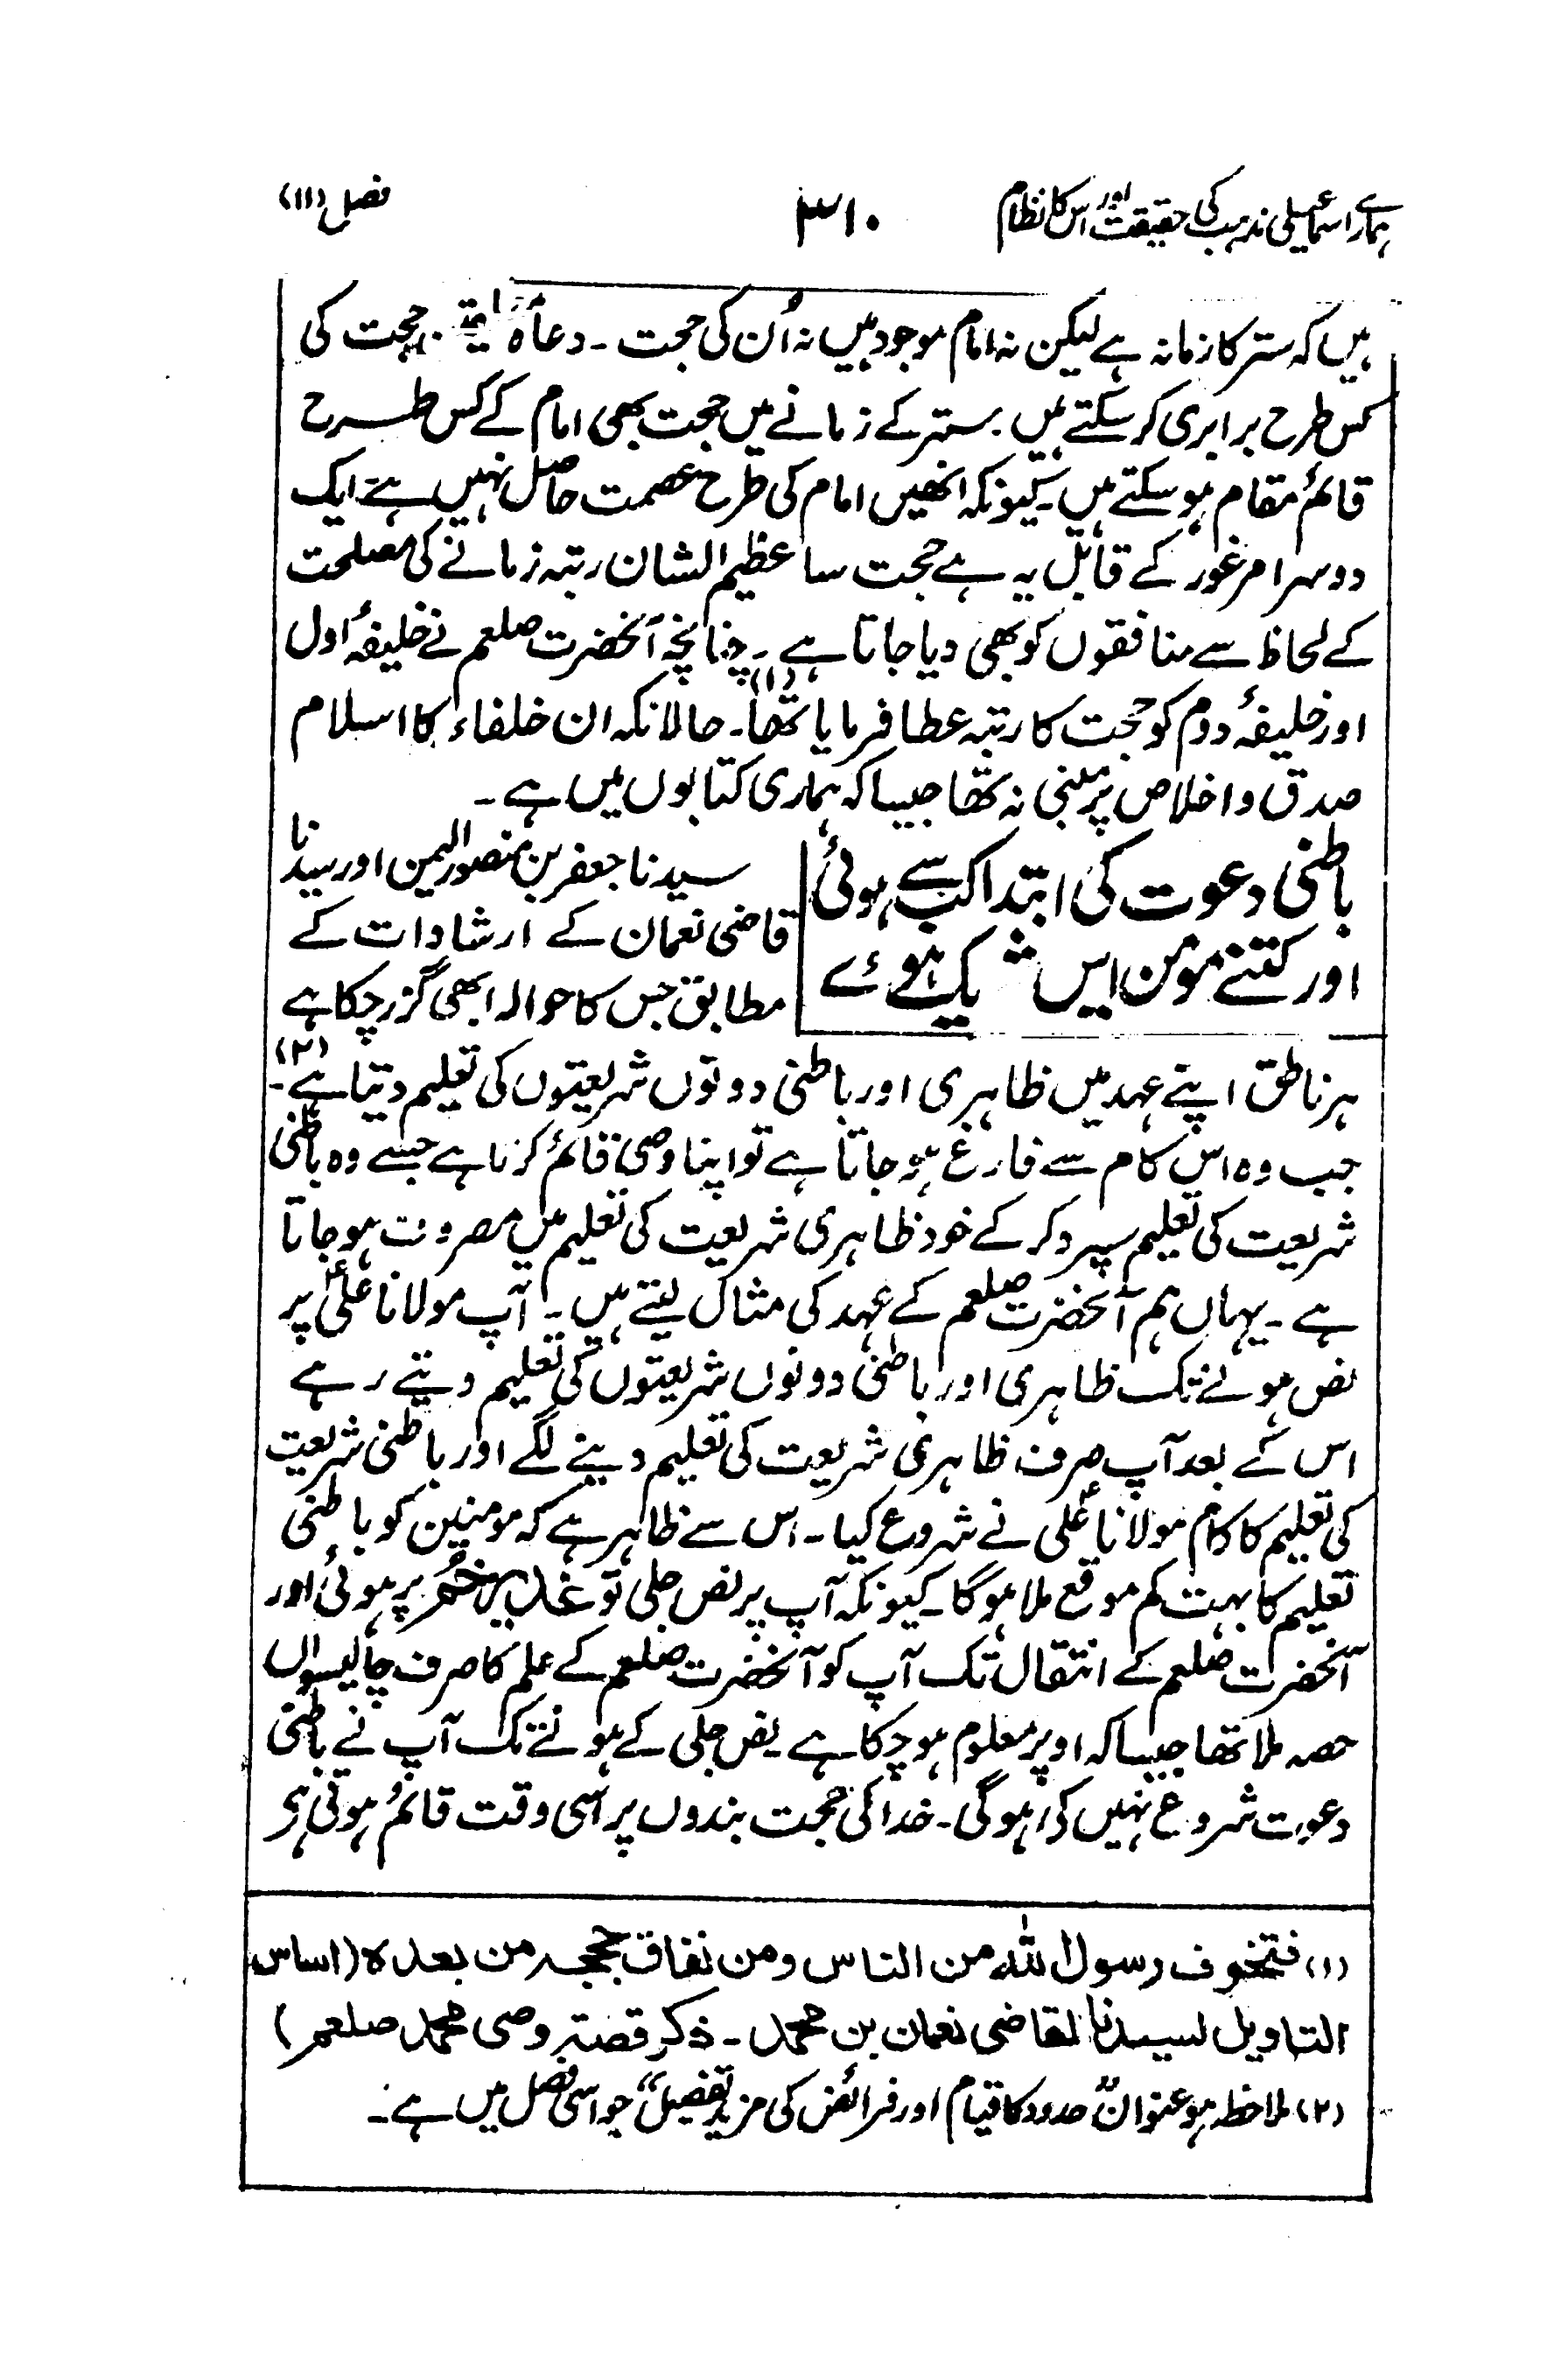 ہمارے اسماعیلی مذہب کی حقیقت اور اس کا نظام ۳۱۰ فصل (۱۱)
ہیں کہ ستر کا زمانہ ہے لیکن نہ امام موجود ہیں نہ اُن کی حجت ۔ دعاۃ حجت کی
کس طرح برابری کر سکتے ہیں ۔ ستر کے زمانے میں حجت بھی امام کے کس طرح
قائم مقام ہو سکتے ہیں ۔ کیونکہ انھیں امام کی طرح عصمت حاصل نہیں ہے ۔ ایک
دوسرا امر غور کے قابل یہ ہے حجت سا عظیم الشان رتبہ زمانے کی مصلحت
کے لحاظ سے منافقوں کو بھی دیا جاتا ہے ۔ چنانچہ آنحضرت صلعم نے خلیفۂ اول
اور خلیفۂ دوم کو حجت کا رتبہ عطا فرمایا تھا (۱)۔ حالانکہ ان خلفاء کا اسلام
صدق و اخلاص پر مبنی نہ تھا جیسا کہ ہماری کتابوں میں ہے ۔
باطنی دعوت کی ابتدا کب سے ہوئی
اور کتنے مومن اس میں شریک ہوئے
سیدنا جعفر بن منصور الیمن اور سیدنا
قاضی نعمان کے ارشادات کے
مطابق جس کا حوالہ ابھی گزر چکا ہے
ہر ناطق اپنے عہد میں ظاہری اور باطنی دونوں شریعتوں کی تعلیم دیتا ہے (۲)۔
جب وہ اس کام سے فارغ ہو جاتا ہے تو اپنا وصی قائم کرتا ہے جسے وہ باطنی
شریعت کی تعلیم سپرد کر کے خود ظاہری شریعت کی تعلیم میں مصروف ہو جاتا
ہے ۔ یہاں ہم آنحضرت صلعم کے عہد کی مثال لیتے ہیں ۔ آپ مولانا علیؑ پر
نص ہونے تک ظاہری اور باطنی دونوں شریعتوں کی تعلیم دیتے رہے
اس کے بعد آپ صرف ظاہری شریعت کی تعلیم دینے لگے اور باطنی شریعت
کی تعلیم کا کام مولانا علیؑ نے شروع کیا ۔ اس سے ظاہر ہے کہ مومنین کو باطنی
تعلیم کا بہت کم موقع ملا ہوگا ۔ کیونکہ آپ پر نص جلی تو غدیر خُم پر ہوئی اور
آنحضرت صلعم کے انتقال تک آپ کو آنحضرت صلعم کے علم کا صرف چالیسواں
حصہ ملا تھا جیسا کہ اوپر معلوم ہو چکا ہے نص جلی کے ہونے تک آپ نے باطنی
دعوت شروع نہیں کی ہوگی ۔ خدا کی حجت بندوں پر اسی وقت قائم ہوتی ہے
(۱) فتخوف رسول اللہ من الناس ومن نفاق حججہ من بعدہ (اساس
التاویل لسیدنا القاضی نعمان بن محمد ۔ ذکر قصۃ وصی محمد صلعم)
(۲) ملاحظہ ہو عنوان "حدود کا قیام اور فرائض کی مزید تفصیل" جو اسی فصل میں ہے ۔